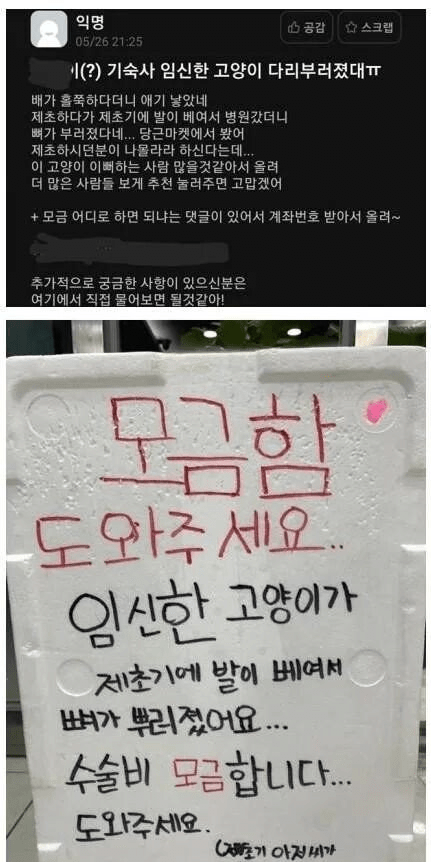 익명
05/26 21:25
공감
스크랩
이(?) 기숙사 임신한 고양이 다리부러졌대ㅠ
배가 홀쭉하다더니 애기 낳았네
제초하다가 제초기에 발이 베여서 병원갔더니
뼈가 부러졌다네... 당근마켓에서 봤어
제초하시던분이 나몰라라 하신다는데...
이 고양이 이뻐하는 사람 많을것같아서 올려
더 많은 사람들 보게 추천 눌러주면 고맙겠어
+ 모금 어디로 하면 되냐는 댓글이 있어서 계좌번호 받아서 올려~
추가적으로 궁금한 사항이 있으신분은
여기에서 직접 물어보면 될것같아!
모금함
도와주세요..
임신한 고양이가
제초기에 발이 베여서
뼈가 뿌러졌어요...
수술비 모금합니다...
도와주세요.
(제초기 아저씨가